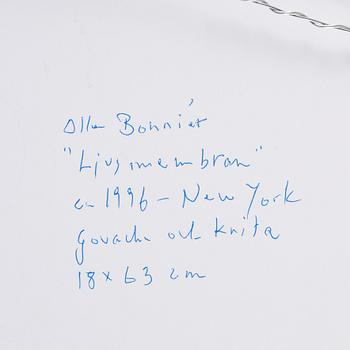 Olle Bonniér
"Ljusmembran"
ca 1996 – New York
gouache och krita
18 x 63 cm